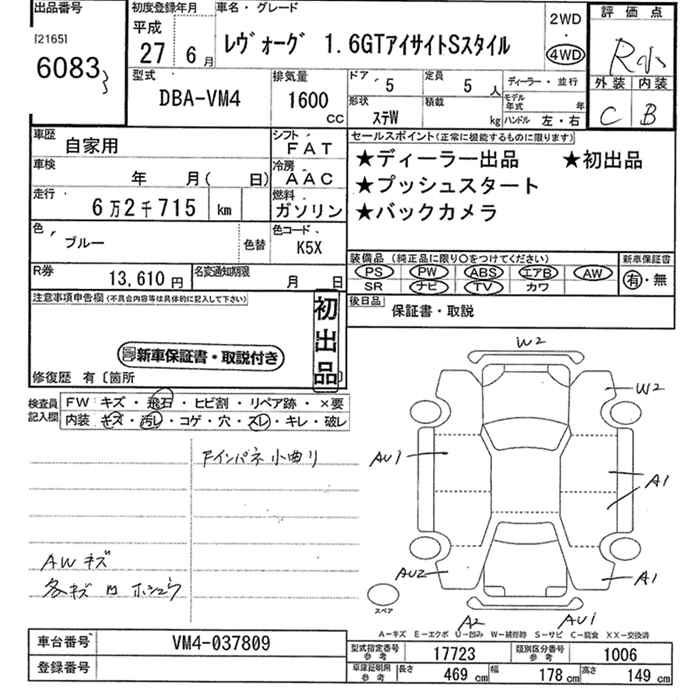 出品番号
[2165]
6083
初度登録年月
平成
27年 6月
車名・グレード
レヴォーグ 1.6GTアイサイトSスタイル
2WD
・
4WD
評価点
R小
外装 内装
C B
型式
DBA-VM4
排気量
1600
cc
ドア 5
定員 5人
形状 ステW
積載 kg
ディーラー・並行
モデル年式 年
ハンドル 左・右
車歴 自家用
車検 年 月( 日)
走行 6万2千715 km
色 ブルー
色替
シフト FAT
冷房 AAC
燃料 ガソリン
色コード K5X
セールスポイント(正常に機能するものに限ります)
★ディーラー出品 ★初出品
★プッシュスタート
★バックカメラ
装備品(純正品に限り○をつけてください)
PS PW ABS エアB AW
SR ナビ TV カワ
新車保証書
有・無
R券 13,610円
名変通知期限 月 日
後日品 保証書・取説
注意事項申告欄(不具合内容等は具体的に記入して下さい)
新車保証書・取説付き
初出品
修復歴 有〔箇所 〕
検査員記入欄
FW キズ・飛石・ヒビ割・リペア跡・×要
内装 キズ・汚レ・コゲ・穴・スレ・キレ・破レ
Fインパネ小曲リ
AWキズ
各キズ凹ホシュウ
W2
W2
AU1
A1
AU2
A1
A2
AU1
スペア
A-キズ E-エクボ U-凹み W-補修跡 S-サビ C-腐食 XX-交換済
車台番号 VM4-037809
登録番号
型式指定番号参考 17723
類別区分番号参考 1006
車庫証明用参考 長さ 469cm 幅 178cm 高さ 149cm